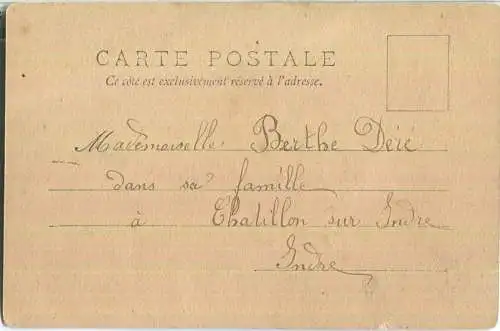 CARTE POSTALE
Ce côté est exclusivement réservé à l'adresse.
Mademoiselle Berthe Déré
dans sa famille
à Châtillon sur Indre
Indre